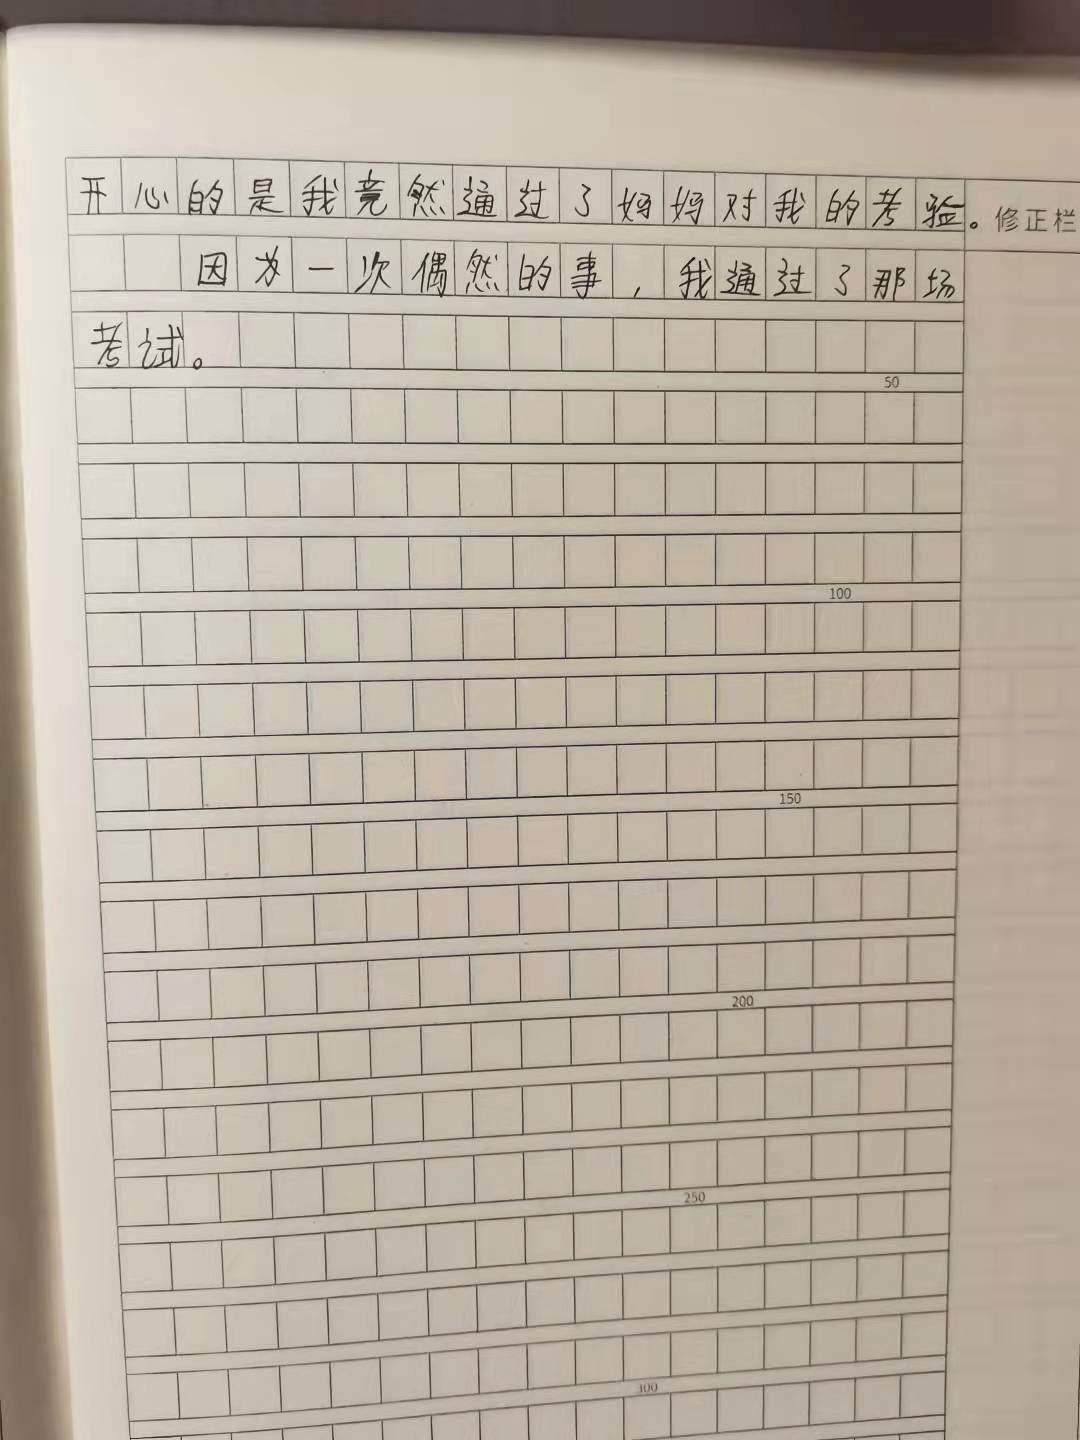 开心的是我竟然通过了妈妈对我的考验。
修正栏
因为一次偶然的事,我通过了那场
考试。
50
100
150
200
250
300